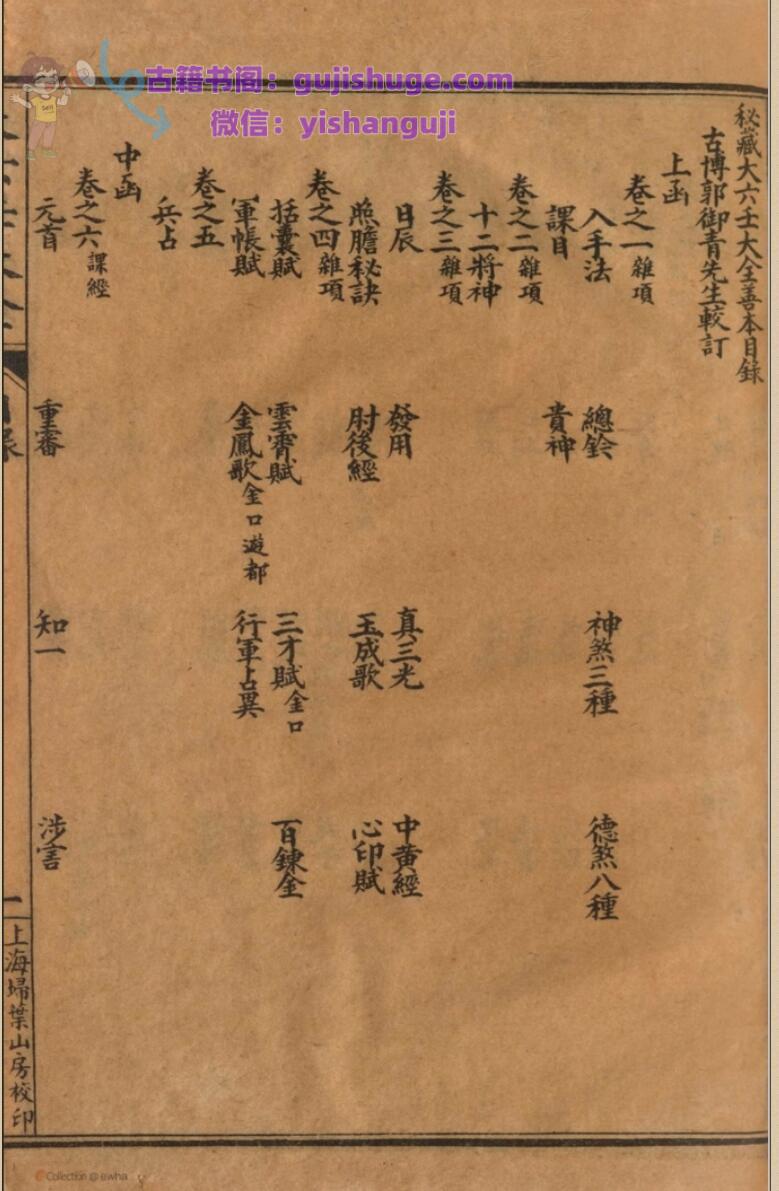 古籍书阁：gujishuge.com
微信：yishanguji
秘藏大六壬大全善本目錄
古博郭御青先生較訂
上函
卷之一雜項
入手法 總鈐 神煞三種 德煞八種
課目 貴神
卷之二雜項
十二將神
卷之三雜項
日辰 發用 真三光 中黄經
照膽秘訣 肘後經 玉成歌 心印賦
卷之四雜項
括囊賦 雲霄賦 三才賦金口 百鍊金
軍帳賦 金鳳歌金口遊都 行軍占異
卷之五
兵占
中函
卷之六課經
元首 重審 知一 涉害
一
上海埽葉山房校印
Collection @ ewha